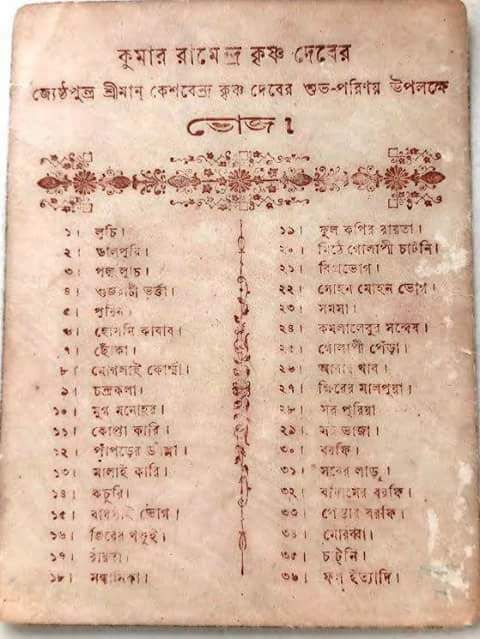 কুমার রামেন্দ্র কৃষ্ণ দেবের
জ্যেষ্ঠপুত্র শ্রীমান্ কেশবেন্দ্র কৃষ্ণ দেবের শুভ-পরিণয় উপলক্ষে
ভোজ।
১। লুচি।
২। ডালপুরি।
৩।
৪। গুজরাটী ভর্ত্তা।
৫।
৬। হোসনি কাবাব।
৭। ছোঁকা।
৮। মোগলাই কোর্ম্মা।
৯। চন্দ্রকলা।
১০। মুখ মনোহর।
১১। কোপ্তা কারি।
১২। পাঁপড়ের
১৩। মালাই কারি।
১৪। কচুরি।
১৫। ভোগ।
১৬।
১৭। রায়তা।
১৮।
১৯। ফুল কপির রায়তা।
২০। মিঠে গোলাপী চাটনি।
২১।
২২। সোহন মোহন ভোগ।
২৩। সমসা।
২৪। কমলালেবুর সন্দেষ।
২৫। গোলাপী পেঁড়া।
২৬। আবার খাব।
২৭। ক্ষিরের মালপুয়া।
২৮। সর পুরিয়া
২৯। ভাজা।
৩০। বরফি।
৩১। লাড়ু।
৩২। বাদামের বরফি।
৩৩। পেস্তার বরফি।
৩৪। মোরব্বা।
৩৫। চাট্‌নি।
৩৬। ফল ইত্যাদি।